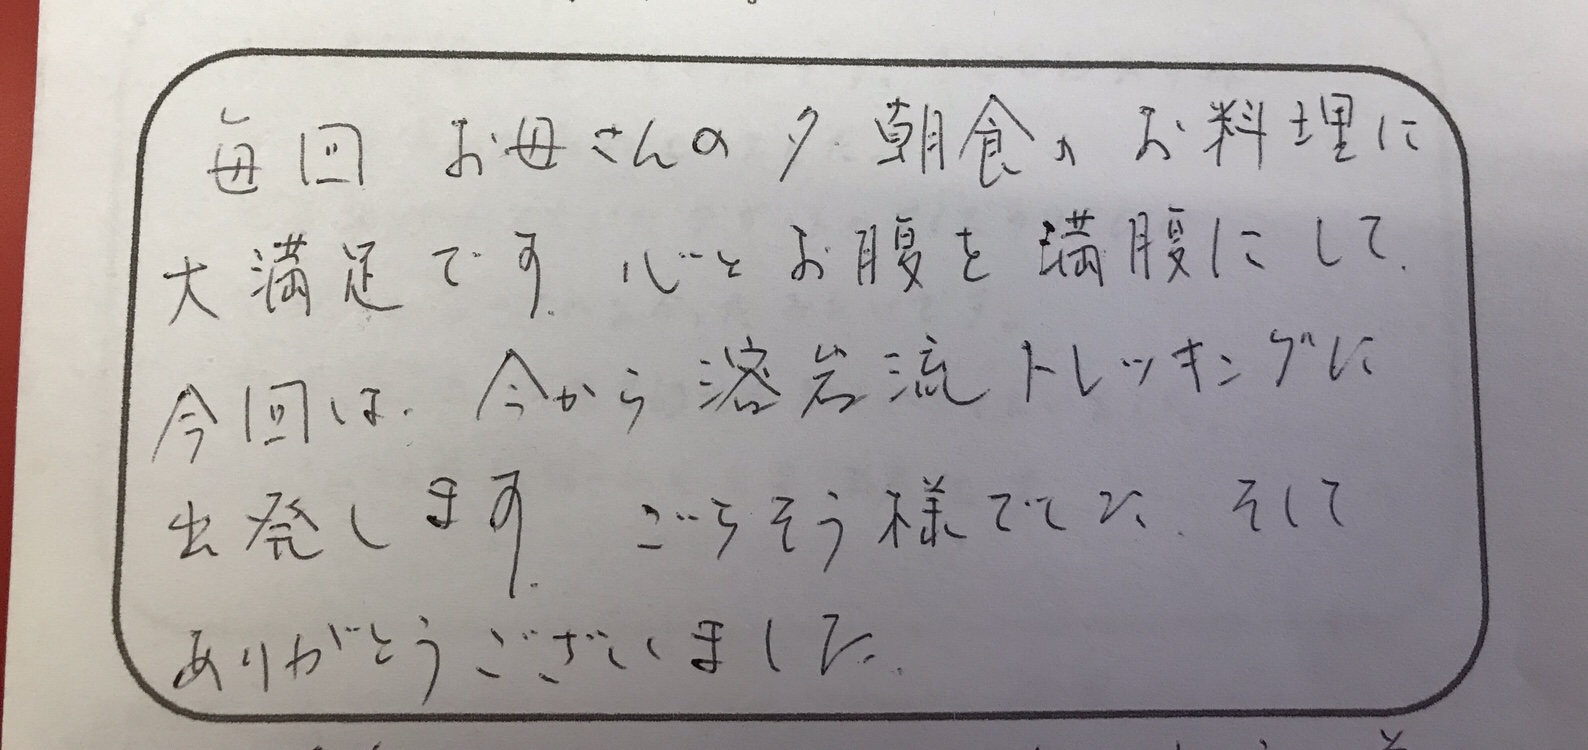 毎回 お母さんの夕.朝食のお料理に
大満足です. 心とお腹を満腹にして.
今回は. 今から溶岩流トレッキングに
出発します. ごちそう様でした. そして
ありがとうございました.